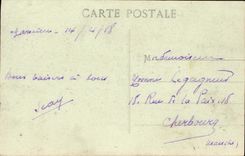 CARTE POSTALE
14/4/18
Mademoiselle
Bons baisers à tous
Yvonne Legagneur
18. Rue de la Paix. 18
Cherbourg
(Manche)